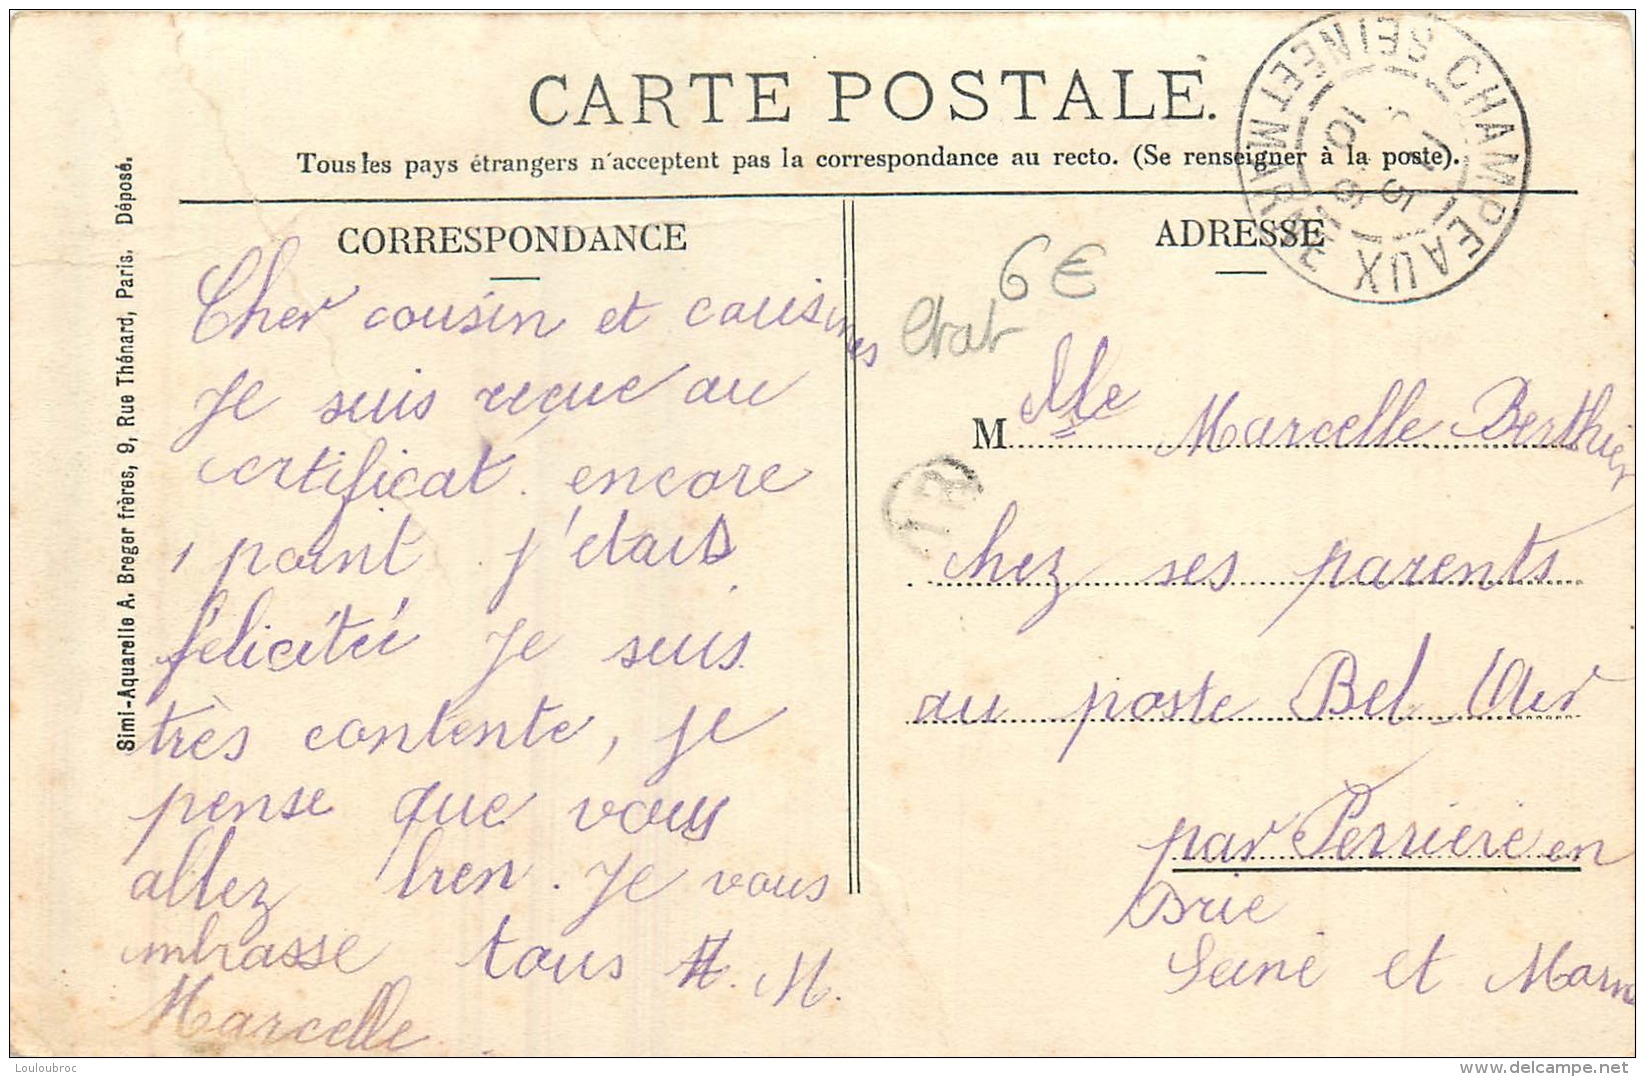 CARTE POSTALE.
Tous les pays étrangers n'acceptent pas la correspondance au recto. (Se renseigner à la poste).
CORRESPONDANCE
Cher cousin et cousines
Je suis reçue au
certificat. encore
1 point j'étais
félicitée Je suis
très contente, je
pense que vous
allez bien. Je vous
mbrasse tous
Marcelle
ADRESSE
6 €
M Mlle Marcelle Berthier
chez ses parents
au poste Bel Air
par Ferrière en
Brie
Seine et Marne
CHAMPEAUX
SEINE ET MARNE
Simi-Aquarelle A. Breger frères, 9, Rue Thénard, Paris. Déposé.
Louloubroc
www.delcampe.net